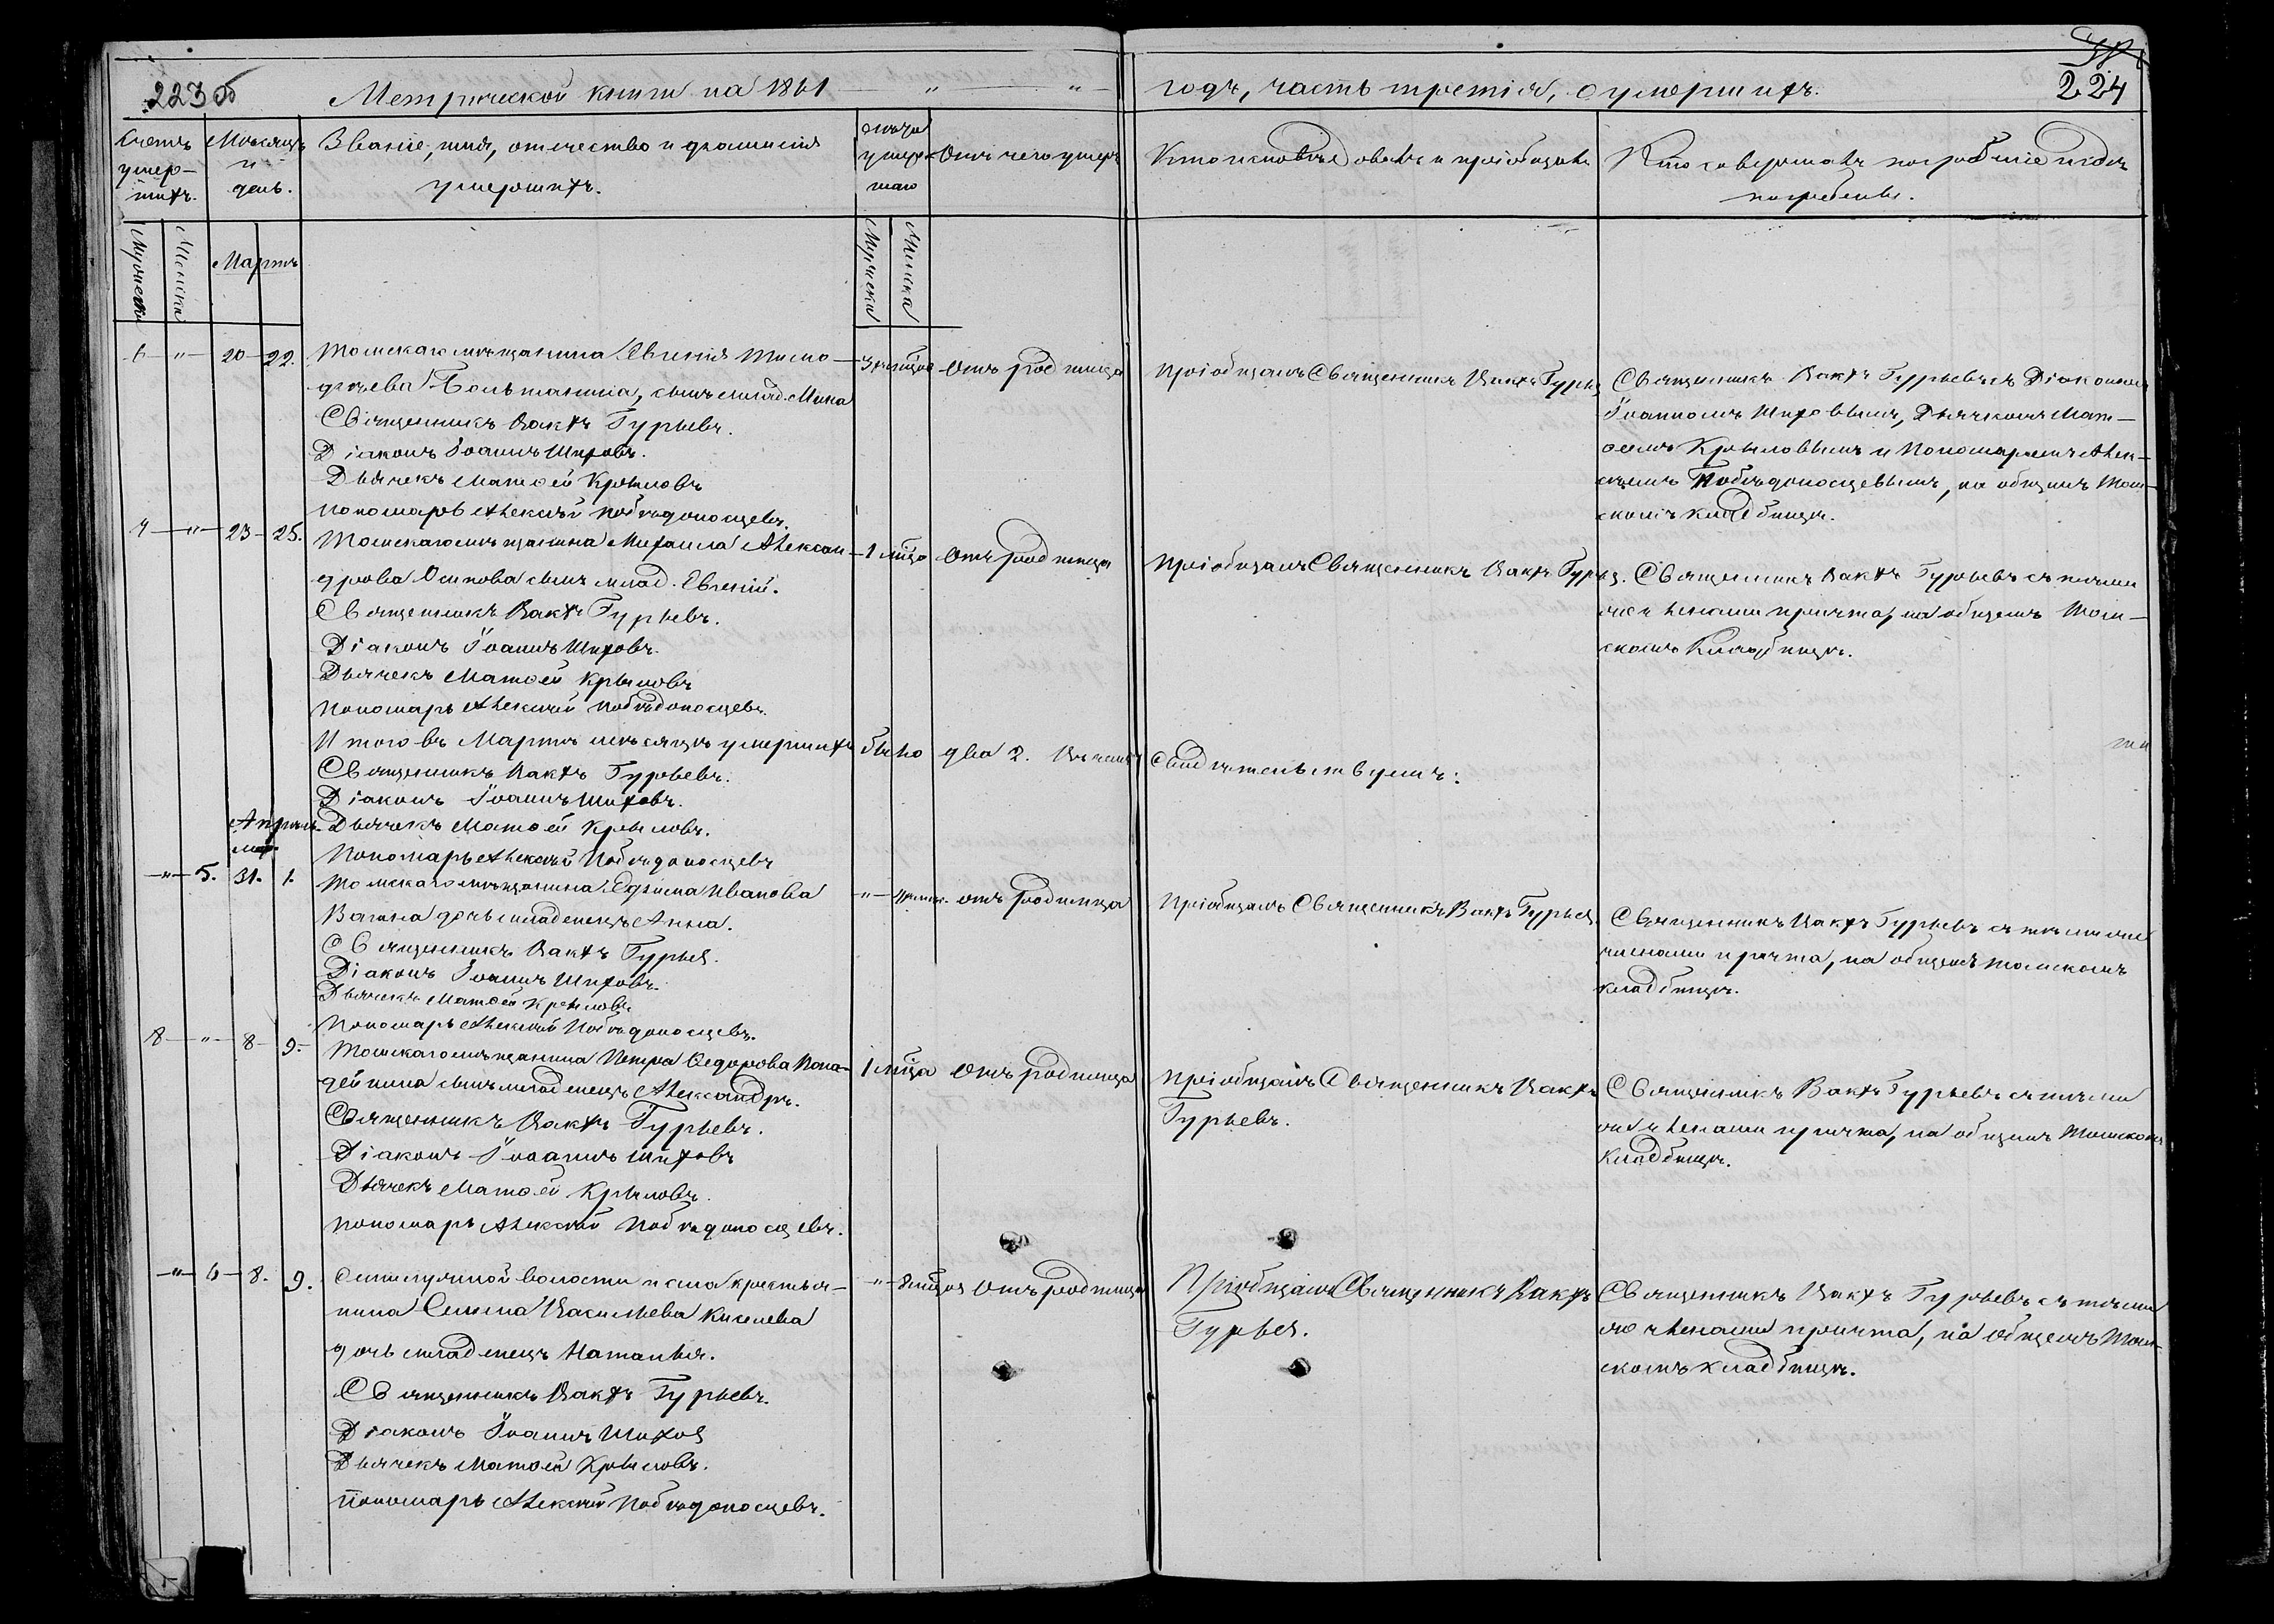 223 об
Метрической книги на 1861 " " годъ, часть третія, о умершихъ.
224
Счетъ умер-шихъ.
Мѣсяцъ и день.
Званіе, имя, отечество и фамилія умершихъ.
Лѣта умер-шаго
Отъ чего умеръ
Кто исповѣдовалъ и пріобщалъ
Кто совершалъ погребеніе и гдѣ погребены.
Мужеска
Женска
Мартъ
Мужеска
Женска
6 " 20 22. Томскаго мѣщанина Евгенія Тимо-
фѣева сынъ млад. Мина
Священникъ Вакхъ Гурьевъ.
Діаконъ Іоаннъ Шиховъ.
Дьячекъ Матѳей Крыловъ
Пономарь Алексѣй Побѣдоносцевъ.
Отъ родимца
Пріобщалъ Священникъ Вакхъ Гурьев
Священникъ Вакхъ Гурьевъ съ Діакономъ
Іоанномъ Шиховымъ, Дьячкомъ Мат-
ѳеемъ Крыловымъ и Пономаремъ Алек-
сѣемъ Побѣдоносцевымъ, на общемъ Том-
скомъ кладбищѣ.
7 " 23 25. Томскаго мѣщанина Михаила Алексан-
дрова Осипова сынъ млад. Евгеній.
Священникъ Вакхъ Гурьевъ.
Діаконъ Іоаннъ Шиховъ.
Дьячекъ Матѳей Крыловъ
Пономарь Алексѣй Побѣдоносцевъ.
1 Отъ родимца
Пріобщалъ Священникъ Вакхъ Гурьев.
Священникъ Вакхъ Гурьевъ съ тѣми
же членами причта, на общемъ Том-
скомъ Кладбищѣ.
Итого въ Мартѣ мѣсяцѣ умершихъ было два 2. свидѣтельствуемъ:
Священникъ Вакхъ Гурьевъ.
Діаконъ Іоаннъ Шиховъ.
Апрѣль
Дьячекъ Матѳей Крыловъ.
Пономарь Алексѣй Побѣдоносцевъ
" 5. 31. 1. Томскаго мѣщанина Ефима Иванова
дочь младенецъ Анна.
Священникъ Вакхъ Гурьев.
Діаконъ Іоаннъ Шиховъ.
Дьячекъ Матѳей Крыловъ
Пономарь Алексѣй Побѣдоносцевъ.
" отъ родимца
Пріобщалъ Священникъ Вакхъ Гурьев.
Священникъ Вакхъ Гурьевъ съ тѣми же
членами причта, на общемъ томскомъ
кладбищѣ.
8 " 8 9. Томскаго мѣщанина Петра Ѳедорова
сынъ младенецъ Александръ.
Священникъ Вакхъ Гурьевъ.
Діаконъ Іоаннъ Шиховъ
Дьячекъ Матѳей Крыловъ.
Пономарь Алексѣй Побѣдоносцевъ.
1 Отъ родимца
Пріобщалъ Священникъ Вакхъ
Гурьевъ.
Священникъ Вакхъ Гурьевъ съ тѣми
же членами причта, на общемъ Томском
Кладбищѣ.
" 6 8. 9. волости и села крестья-
нина Васильева Киселева
дочь младенецъ Наталья.
Священникъ Вакхъ Гурьевъ.
Діаконъ Іоаннъ Шихов
Дьячекъ Матѳей Крыловъ.
Пономарь Алексѣй Побѣдоносцевъ.
" Отъ родимца
Пріобщалъ Священникъ Вакхъ
Гурьев.
Священникъ Вакхъ Гурьевъ съ тѣми
же членами причта, на общемъ Том-
скомъ кладбищѣ.